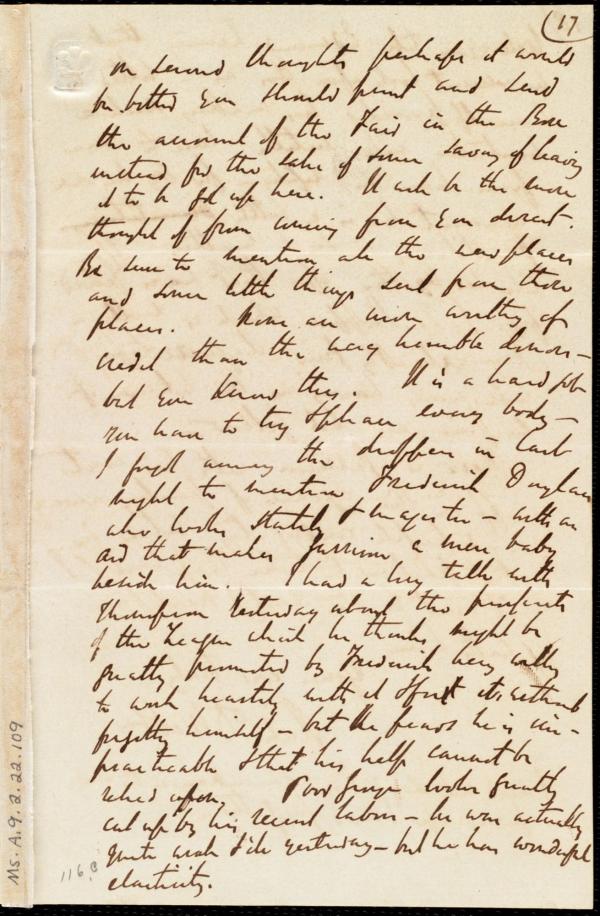 17
on second thoughts perhaps it would
be better you should print and send
the account of the Fair in the Box
instead for the sake of some saving of having
it to be got up here. It will be the more
thought of from coming from you direct.
Be sure to mention all the new places
and some little things sent from those
places. None are more worthy of
credit than the very humble donors—
but you know this. It is a hard job
you have to try & please every body—
I forgot among the droppers in last
night to mention Frederick Douglass
who looks stately & majestic — with an
air that makes a mere baby
beside him. I had a long talk with
Thompson yesterday about the prospects
of the League which he thinks might be
greatly promoted by Frederick being willing
to work heartily with it & for it & without
forgetting himself — but he fears he is im-
practicable & that his help cannot be
relied upon. Poor George looks greatly
cut up by his recent labors — he was actually
quite weak & ill yesterday — but he has wonderful
elasticity.
Ms. A. 9. 2. 22. 109
116 B